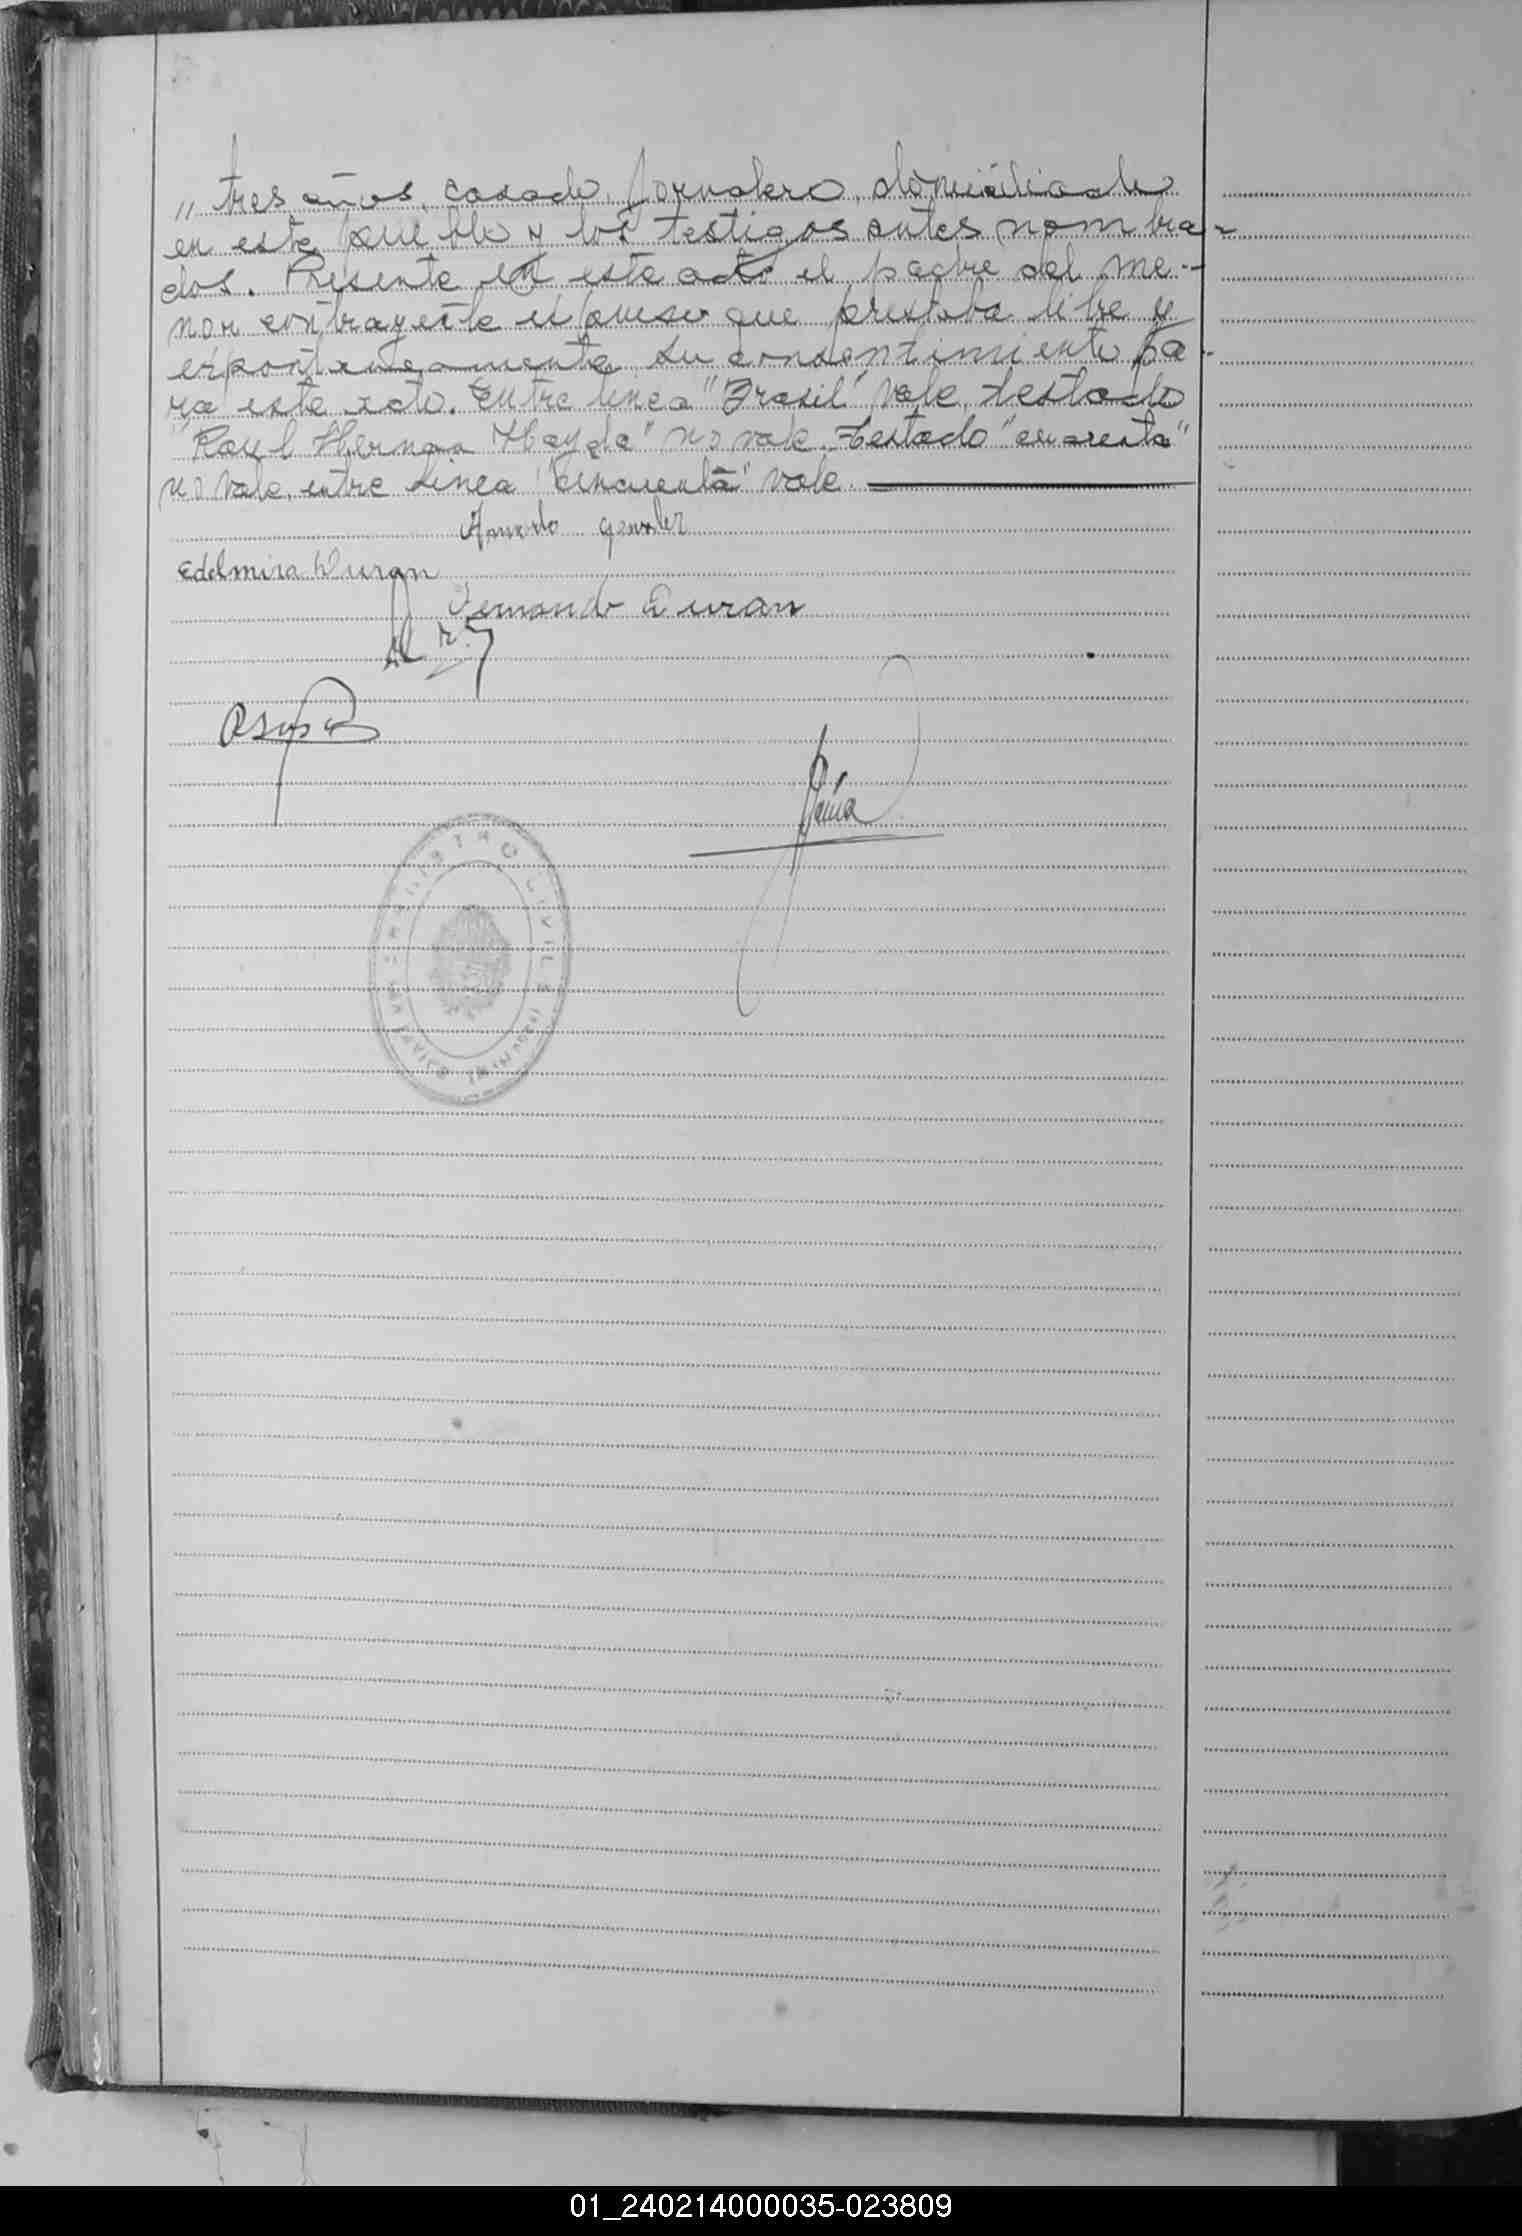 " tres años, casado, jornalero, domiciliado
en este pueblo y los testigos antes nombra-
dos. Presente en este acto el padre del me-
nor contrayente expuso que prestaba libre y
espontaneamente su consentimiento pa-
ra este acto. Entre linea "Brasil" vale, testado
"Raul Hernan Hayde" no vale. Testado "cuarenta"
no vale, entre linea "cincuenta" vale.
Edelmira Duran
Duran
REGISTRO CIVIL
01_240214000035-023809